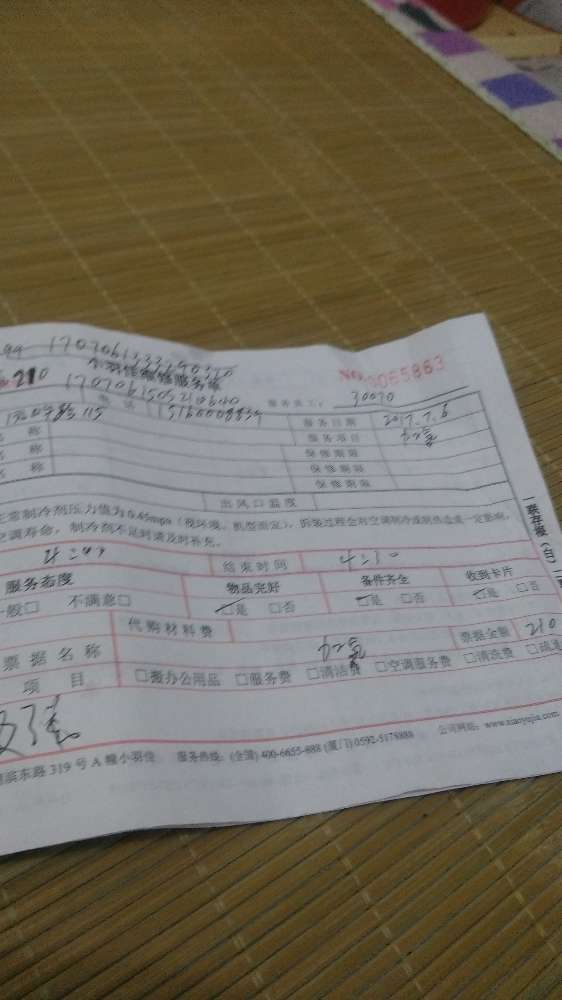 99 1707061333690310
小羽佳家政服务单
210 1707061505210600 NO.0065863
电话 15160008834 服务员工： 30070
称 服务日期 2017.7.6
称 服务项目 加氟
称 保修期限
保修期限
保修期限
出风口温度
正常制冷剂压力值为0.45mpa（视环境、机型而定），拆装过程会对空调制冷或制热造成一定影响，
空调寿命，制冷剂不足时请及时补充。
结束时间 4:30
服务态度 物品完好 备件齐全 收到卡片
一般□ 不满意□ □是 □否 □是 □否 □是 □否
代购材料费
票据名称 加氟 票据金额 210
项目 □搬办公用品 □服务费 □清洁费 □空调服务费 □清洗费
滨东路319号A幢小羽佳 服务热线：(全国) 400-6655-888 (厦门) 0592-5178888 公司网站：www.xiaoyujia.com
一联存根（白）